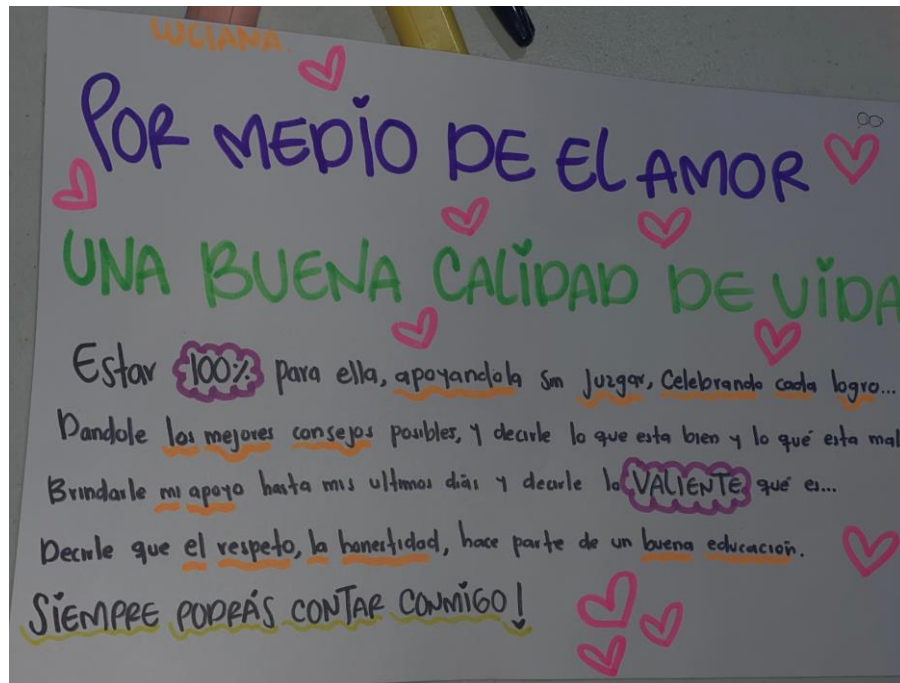 LUCIANA.
POR MEDIO DE EL AMOR
UNA BUENA CALIDAD DE VIDA
Estar 100% para ella, apoyandola sin juzgar, Celebrando cada logro...
Dandole los mejores consejos posibles, y decirle lo que esta bien y lo qué esta mal
Brindarle mi apoyo hasta mis ultimos días y decirle lo VALIENTE qué es...
Decirle que el respeto, la honestidad, hace parte de un buena educación.
SIEMPRE PODRÁS CONTAR CONMIGO!